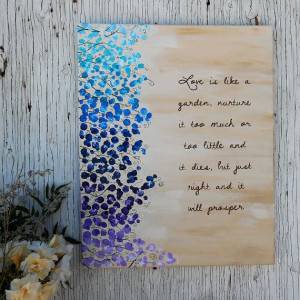 Love is like a
garden, nurture
it too much or
too little and
it dies, but just
right and it
will prosper.